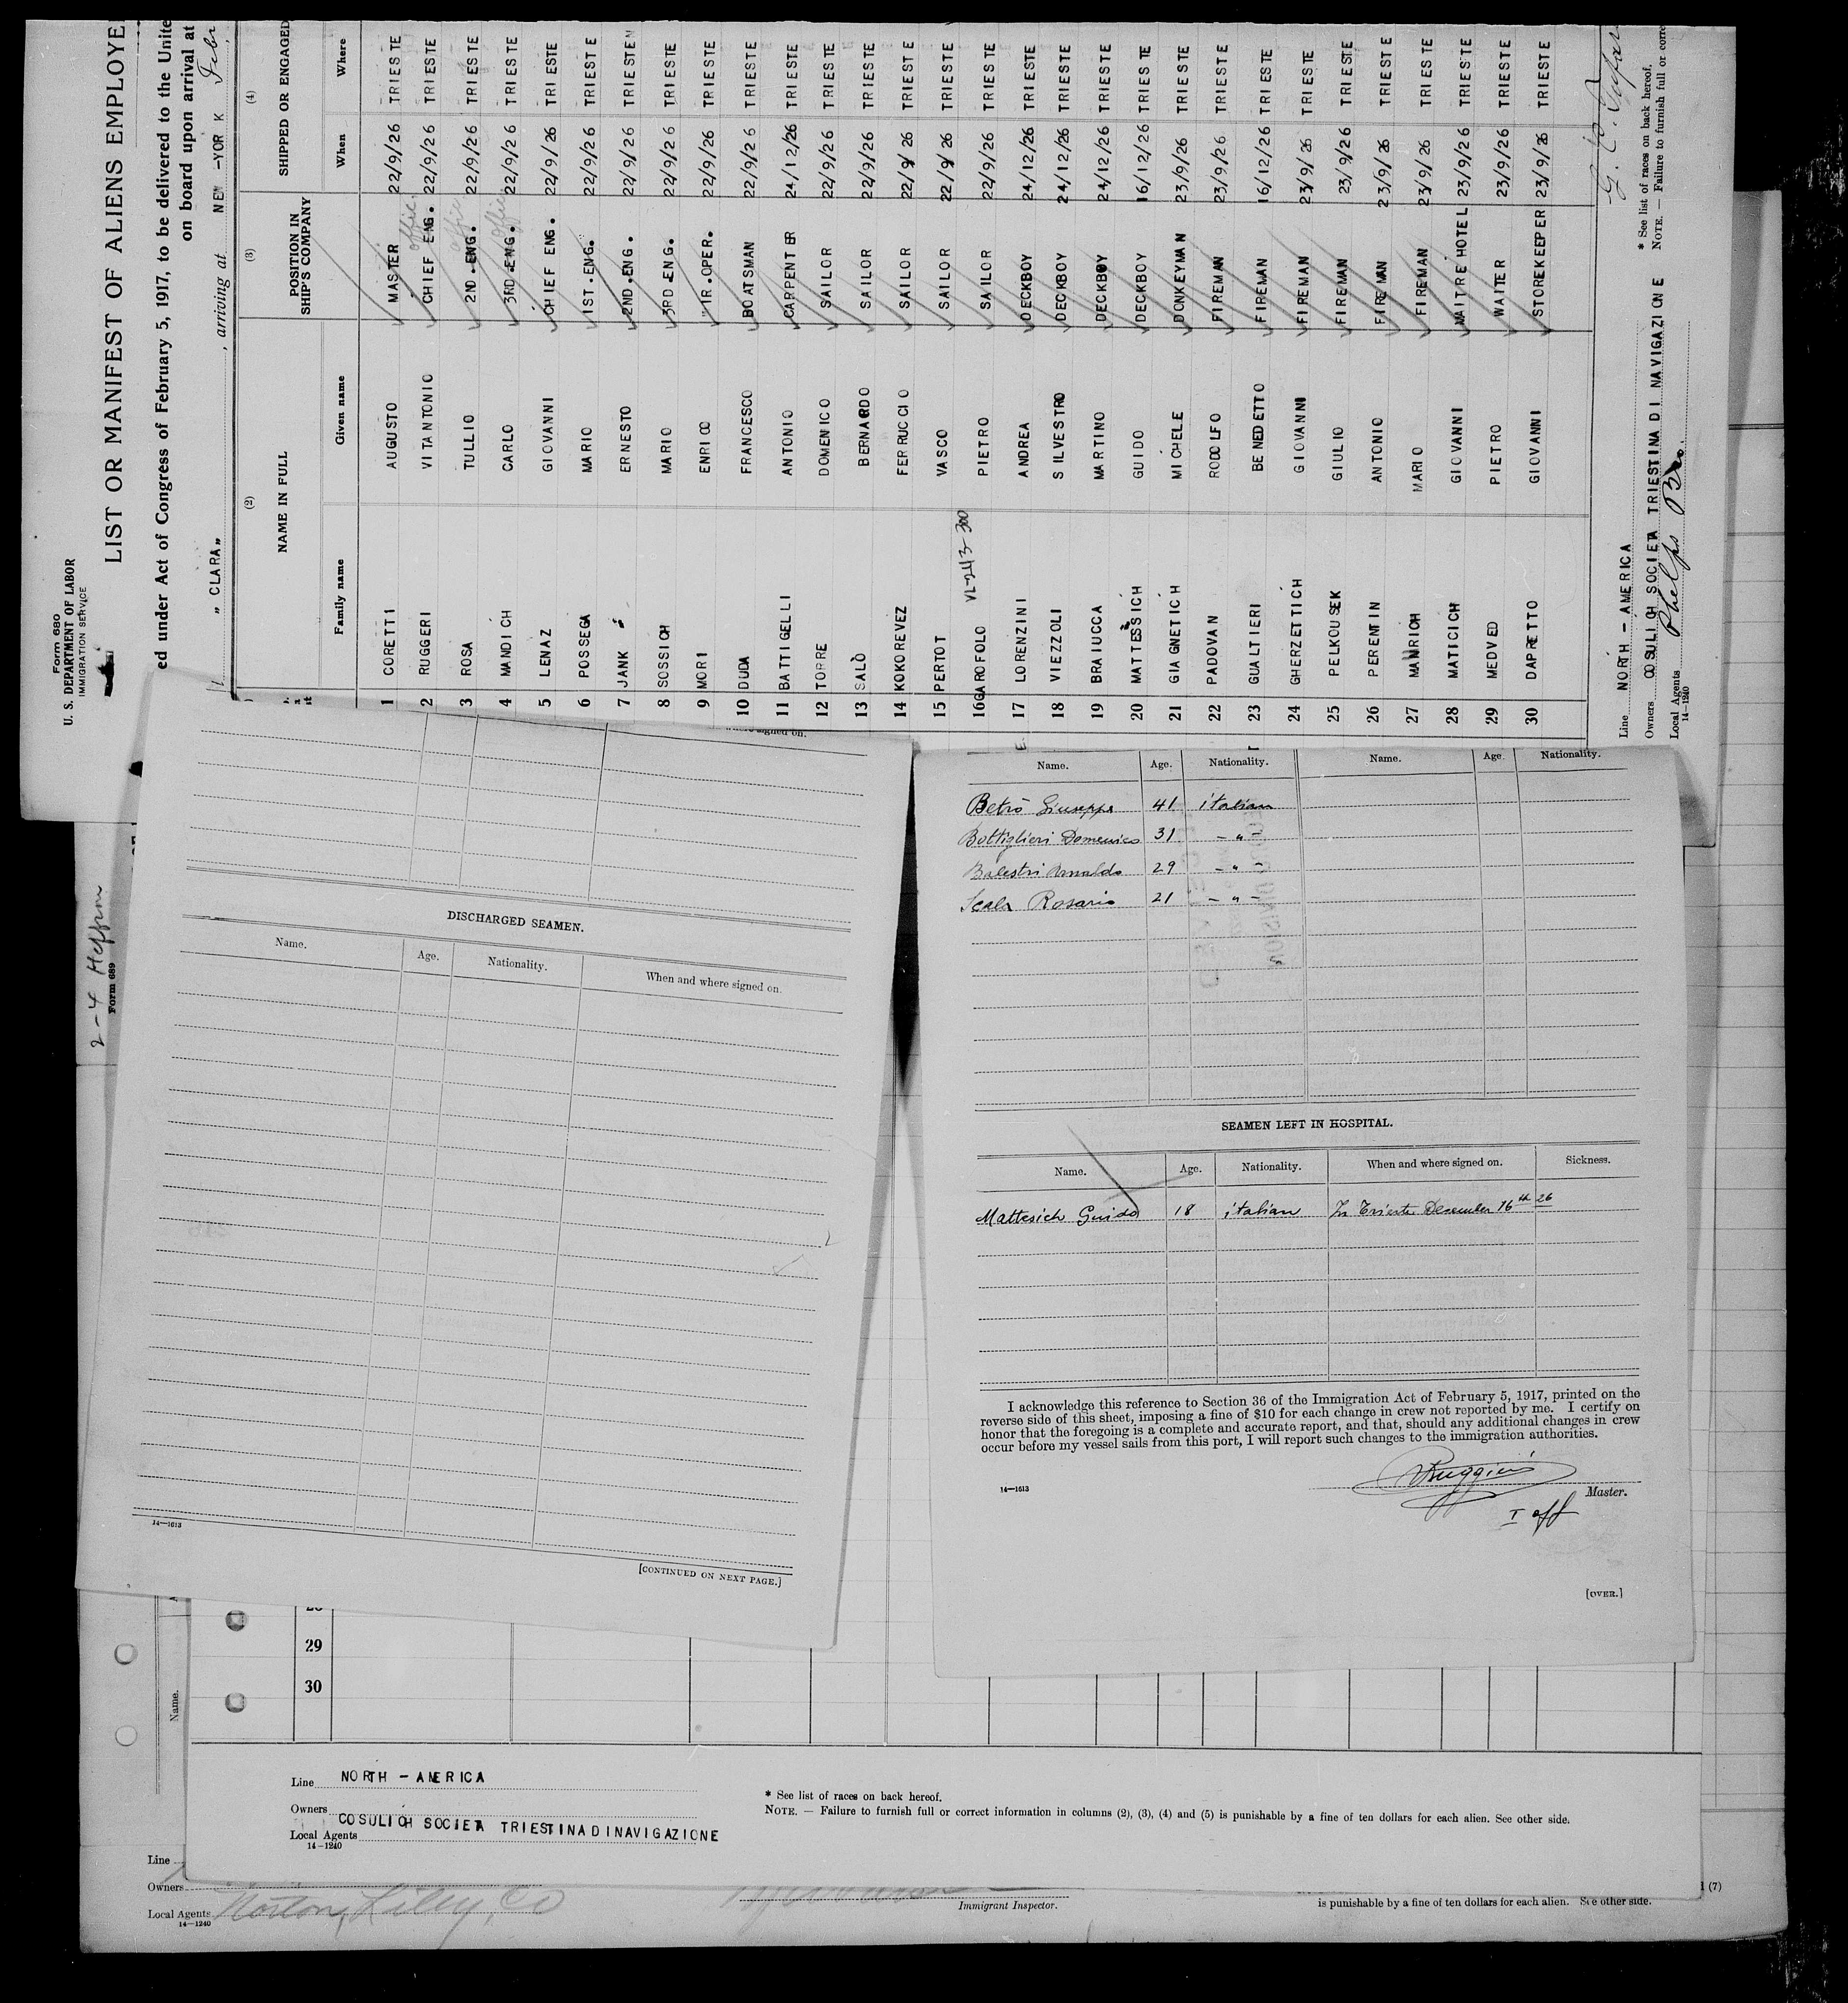 Form 680
U. S. DEPARTMENT OF LABOR
IMMIGRATION SERVICE
LIST OR MANIFEST OF ALIENS EMPLOYE
ed under Act of Congress of February 5, 1917, to be delivered to the Unite
on board upon arrival at
„ CLARA„ , arriving at NEW -YORK
(2) (3) (4)
NAME IN FULL POSITION IN SHIP'S COMPANY SHIPPED OR ENGAGED
Family name Given name When Where
1 CORETTI AUGUSTO MASTER 22/9/26 TRIESTE
2 RUGGERI VITANTONIO CHIEF ENG. offic. 22/9/26 TRIESTE
3 ROSA TULLIO 2ND.ENG. offic. 22/9/26 TRIESTE
4 MANDICH CARLO 3RD.ENG. offic. 22/9/26 TRIESTE
5 LENAZ GIOVANNI CHIEF ENG. 22/9/26 TRIESTE
6 POSSEGA MARIO 1ST.ENG. 22/9/26 TRIESTE
7 JANK ERNESTO 2ND.ENG. 22/9/26 TRIESTE
8 SOSSICH MARIO 3RD.ENG. 22/9/26 TRIESTE
9 MORI ENRICO 1R.OPER. 22/9/26 TRIESTE
10 DUDA FRANCESCO BOATSMAN 22/9/26 TRIESTE
11 BATTIGELLI ANTONIO CARPENTER 24/12/26 TRIESTE
12 TORRE DOMENICO SAILOR 22/9/26 TRIESTE
13 SALÒ BERNARDO SAILOR 22/9/26 TRIESTE
14 KOKOREVEZ FERRUCCIO SAILOR 22/9/26 TRIESTE
15 PERTOT VASCO SAILOR 22/9/26 TRIESTE
16 GAROFOLO VL-243-300 PIETRO SAILOR 22/9/26 TRIESTE
17 LORENZINI ANDREA DECKBOY 24/12/26 TRIESTE
18 VIEZZOLI SILVESTRO DECKBOY 24/12/26 TRIESTE
19 BRAIUCCA MARTINO DECKBOY 24/12/26 TRIESTE
20 MATTESSICH GUIDO DECKBOY 16/12/26 TRIESTE
21 GIAGNETICH MICHELE DONKEYMAN 23/9/26 TRIESTE
22 PADOVAN RODOLFO FIREMAN 23/9/26 TRIESTE
23 GUALTIERI BENEDETTO FIREMAN 16/12/26 TRIESTE
24 GHERZETTICH GIOVANNI FIREMAN 23/9/26 TRIESTE
25 PELKOUSEK GIULIO FIREMAN 23/9/26 TRIESTE
26 PERENTIN ANTONIO FIREMAN 23/9/26 TRIESTE
27 MANRICH MARIO FIREMAN 23/9/26 TRIESTE
28 MATICICH GIOVANNI MAITRE HOTEL 23/9/26 TRIESTE
29 MEDVED PIETRO WAITER 23/9/26 TRIESTE
30 DAPRETTO GIOVANNI STOREKEEPER 23/9/26 TRIESTE
Line NORTH - AMERICA
Owners COSULICH SOCIETA TRIESTINA DI NAVIGAZIONE
Local Agents Phelps Bro.
14-1240
* See list of races on back hereof.
NOTE. — Failure to furnish full or corre
2-4 Heffron
Form 689
DISCHARGED SEAMEN.
Name. Age. Nationality. When and where signed on.
14—1613
[CONTINUED ON NEXT PAGE.]
Name. Age. Nationality. Name. Age. Nationality.
Betrò Giuseppe 41 italian
Bottiglieri Domenico 31 - " -
Balestri Arnaldo 29 - " -
Scala Rosario 21 - " -
SEAMEN LEFT IN HOSPITAL.
Name. Age. Nationality. When and where signed on. Sickness.
Mattesich Guido 18 italian In Trieste December 16th 26
I acknowledge this reference to Section 36 of the Immigration Act of February 5, 1917, printed on the
reverse side of this sheet, imposing a fine of $10 for each change in crew not reported by me. I certify on
honor that the foregoing is a complete and accurate report, and that, should any additional changes in crew
occur before my vessel sails from this port, I will report such changes to the immigration authorities.
14—1613
VRuggieri
Master.
I off
[OVER.]
29
30
Name.
Line NORTH - AMERICA
Owners COSULICH SOCIETA TRIESTINA DI NAVIGAZIONE
Local Agents
14-1240
* See list of races on back hereof.
NOTE. — Failure to furnish full or correct information in columns (2), (3), (4) and (5) is punishable by a fine of ten dollars for each alien. See other side.
Line
Owners
Local Agents Norton, Lilly, Co
14-1240
Immigrant Inspector.
(7)
is punishable by a fine of ten dollars for each alien. See other side.